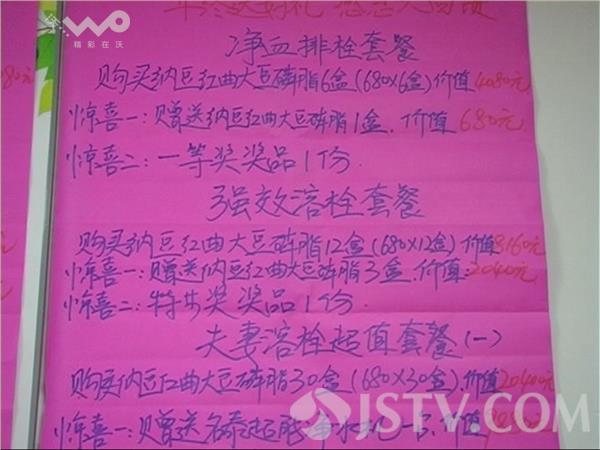 WO
精彩在沃
净血排栓套餐
购买纳豆红曲大豆磷脂6盒(680×6盒)价值4080元
惊喜一:赠送纳豆红曲大豆磷脂1盒.价值680元
惊喜二:一等奖奖品1份
强效溶栓套餐
购买纳豆红曲大豆磷脂12盒(680×12盒)价值8160元
惊喜一:赠送纳豆红曲大豆磷脂3盒.价值:2040元
惊喜二:特等奖奖品1份.
夫妻溶栓超值套餐(一)
购买纳豆红曲大豆磷脂30盒(680×30盒).价值20400元
惊喜一:赠送 一台.价值
080元
JSTV.COM